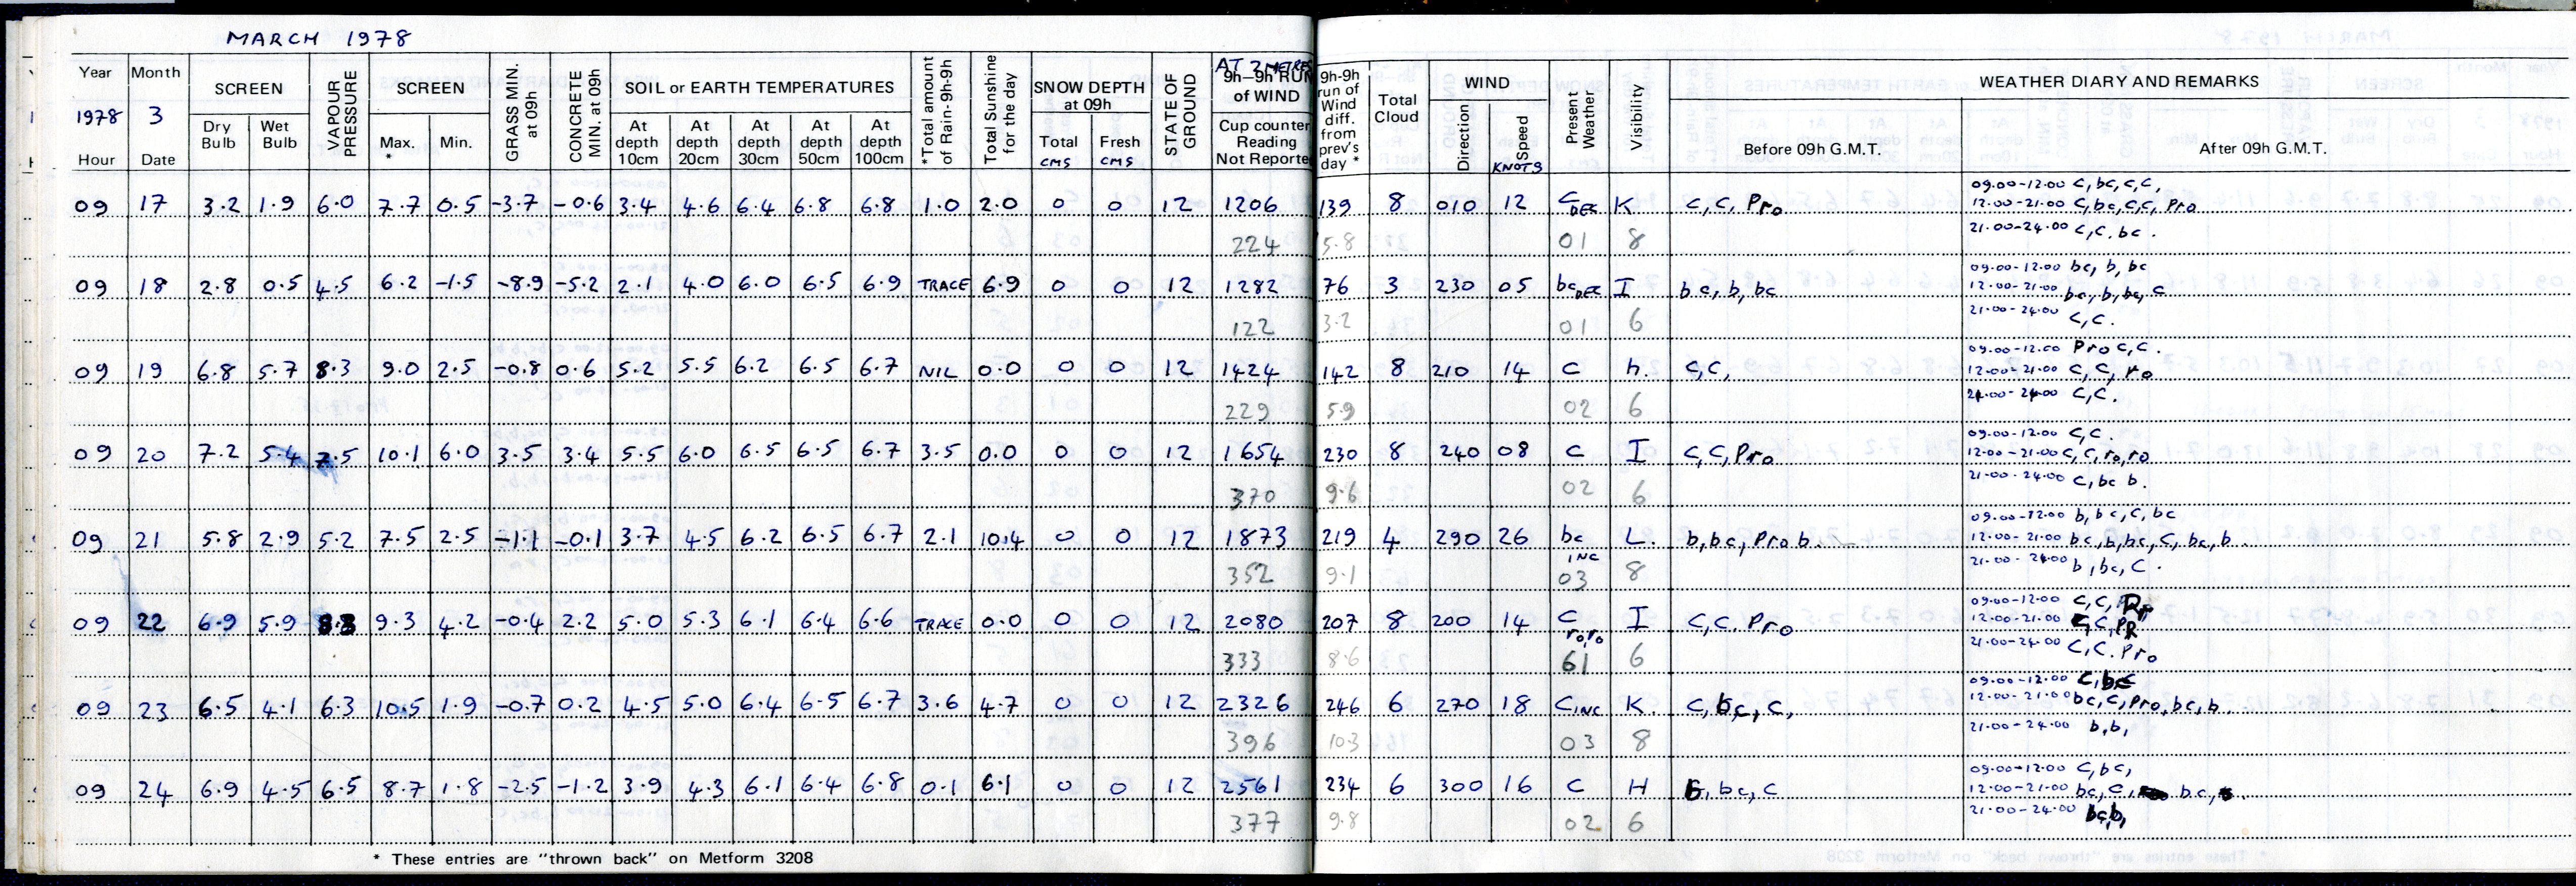 MARCH 1978
Year Month SCREEN VAPOUR PRESSURE SCREEN GRASS MIN. at 09h CONCRETE MIN. at 09h SOIL or EARTH TEMPERATURES *Total amount of Rain-9h-9h Total Sunshine for the day SNOW DEPTH at 09h STATE OF GROUND AT 2 METRES 9h–9h RUN of WIND 9h-9h run of Wind diff. from prev's day * Total Cloud WIND Present Weather Visibility WEATHER DIARY AND REMARKS
1978 3
Hour Date Dry Bulb Wet Bulb Max. * Min. At depth 10cm At depth 20cm At depth 30cm At depth 50cm At depth 100cm Total CMS Fresh CMS Cup counter Reading Not Reported Direction Speed KNOTS Before 09h G.M.T. After 09h G.M.T.
09.00-12.00 C, bc, C, C,
09 17 3.2 1.9 6.0 7.7 0.5 -3.7 -0.6 3.4 4.6 6.4 6.8 6.8 1.0 2.0 0 0 12 1206 139 8 010 12 C DEC K C, C, Pro 12.00-21.00 C, bc, C, C, Pro
224 5.8 01 8 21.00-24.00 C, C. bc.
09.00-12.00 bc, b, bc
09 18 2.8 0.5 4.5 6.2 -1.5 -8.9 -5.2 2.1 4.0 6.0 6.5 6.9 TRACE 6.9 0 0 12 1282 76 3 230 05 bc DEC I bc, b, bc 12.00-21.00 bc, b, bc, C
122 3.2 01 6 21.00-24.00 C, C.
09.00-12.00 Pro C, C.
09 19 6.8 5.7 8.3 9.0 2.5 -0.8 0.6 5.2 5.5 6.2 6.5 6.7 NIL 0.0 0 0 12 1424 142 8 210 14 C h. C, C, 12.00-21.00 C, C, ro
229 5.9 02 6 21.00-24.00 C, C.
09.00-12.00 C, C.
09 20 7.2 5.4 7.5 10.1 6.0 3.5 3.4 5.5 6.0 6.5 6.5 6.7 3.5 0.0 0 0 12 1654 230 8 240 08 C I C, C, Pro 12.00-21.00 C, C, ro, ro
370 9.6 02 6 21.00-24.00 C, bc b.
09.00-12.00 b, bc, C, bc
09 21 5.8 2.9 5.2 7.5 2.5 -1.1 -0.1 3.7 4.5 6.2 6.5 6.7 2.1 10.4 0 0 12 1873 219 4 290 26 bc INC L. b, bc, Pro b. 12.00-21.00 bc, b, bc, C, bc, b.
352 9.1 03 8 21.00-24.00 b, bc, C.
09.00-12.00 C, C,
09 22 6.9 5.9 8.3 9.3 4.2 -0.4 2.2 5.0 5.3 6.1 6.4 6.6 TRACE 0.0 0 0 12 2080 207 8 200 14 C roro I C, C. Pro 12.00-21.00 C, C, PR
333 8.6 61 6 21.00-24.00 C, C. Pro
09.00-12.00 C, bc
09 23 6.5 4.1 6.3 10.5 1.9 -0.7 0.2 4.5 5.0 6.4 6.5 6.7 3.6 4.7 0 0 12 2326 246 6 270 18 C INC K. C, bc, C, 12.00-21.00 bc, C, Pro, bc, b.
396 10.3 03 8 21.00-24.00 b, b,
09.00-12.00 C, bc,
09 24 6.9 4.5 6.5 8.7 1.8 -2.5 -1.2 3.9 4.3 6.1 6.4 6.8 0.1 6.1 0 0 12 2561 234 6 300 16 C H b, bc, C 12.00-21.00 bc, C, bc,
377 9.8 02 6 21.00-24.00 bc, b,
* These entries are "thrown back" on Metform 3208